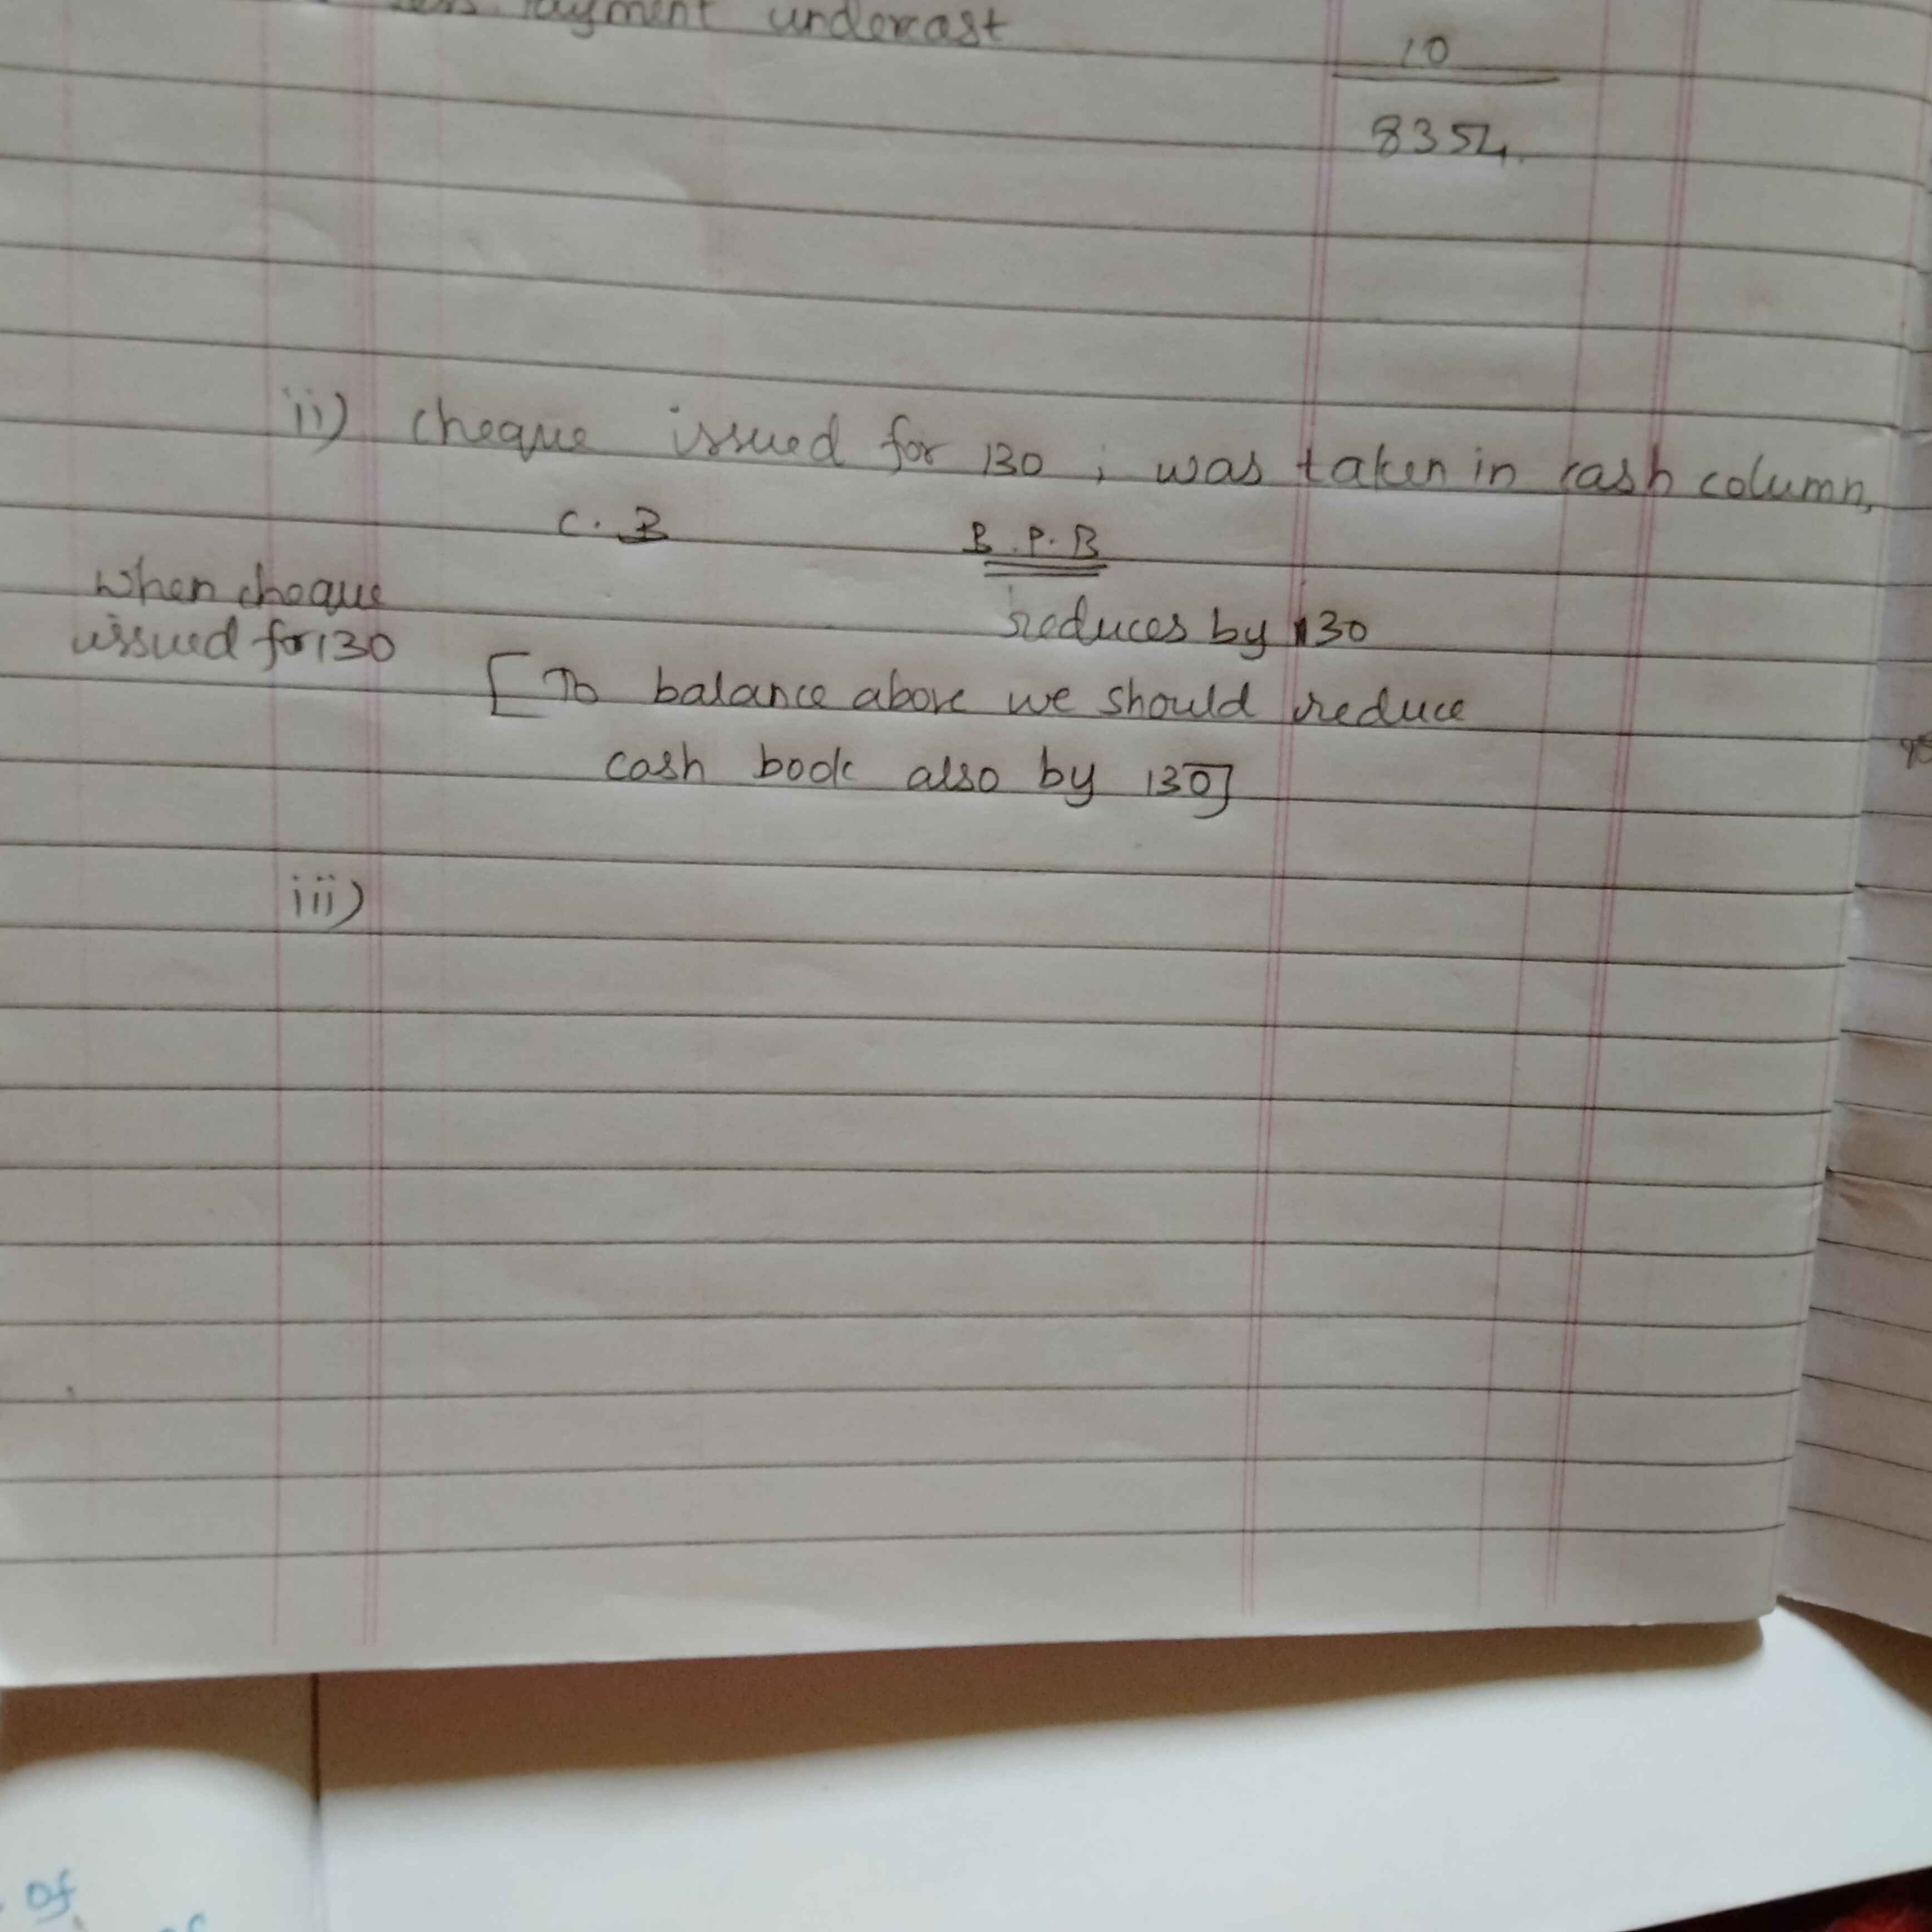 Payment undercast
10
8354.
ii) cheque issued for 130 ; was taken in cash column,
C. B B.P.B
when cheque
issued for 130
reduces by 130
[To balance above we should reduce
cash book also by 130]
iii)
of